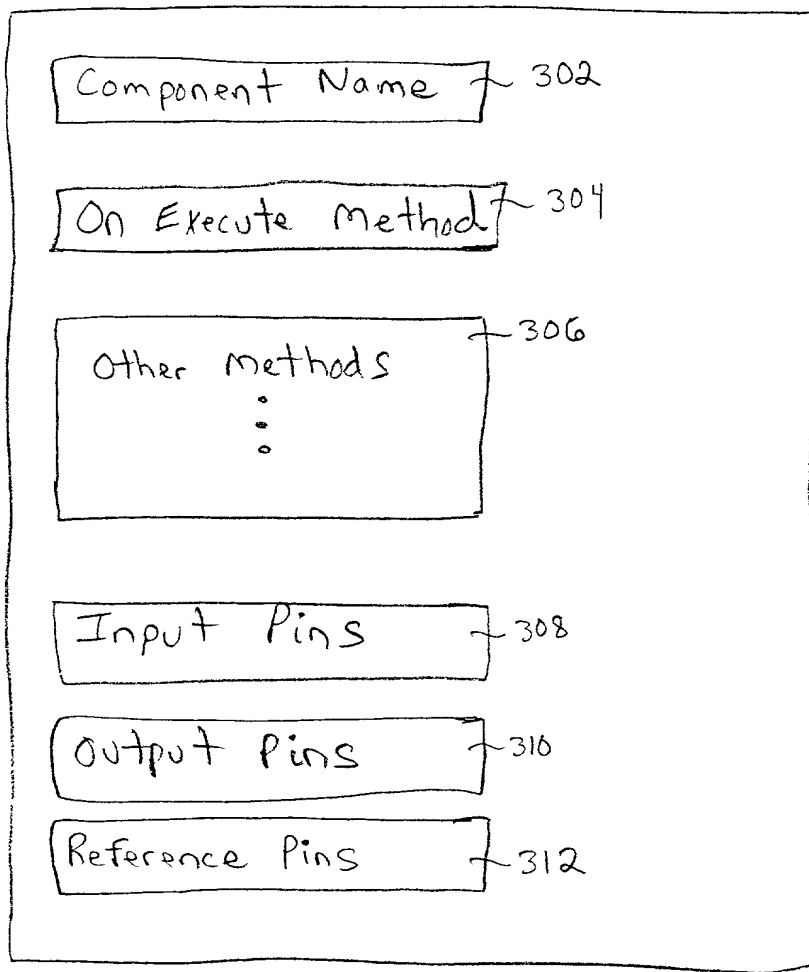 Component Name 302
On Execute Method 304
Other Methods 306
Input Pins 308
Output Pins 310
Reference Pins 312